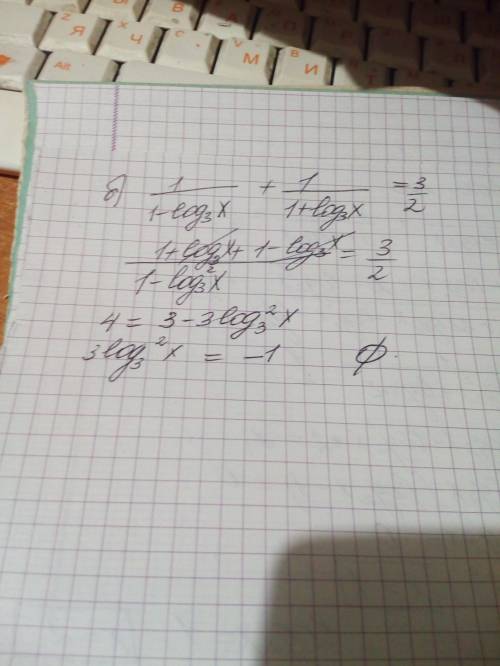 Z X C V
Я Ч С М И
Alt
б) 1/(1-log₃x) + 1/(1+log₃x) = 3/2
(1+log₃x + 1-log₃x)/(1-log₃²x) = 3/2
4 = 3-3log₃²x
3log₃²x = -1 ∅.